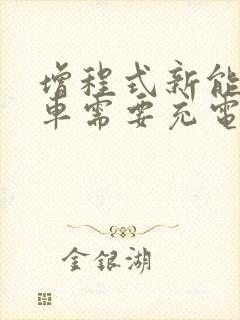 增程式新能
车需要充電
金銀湖